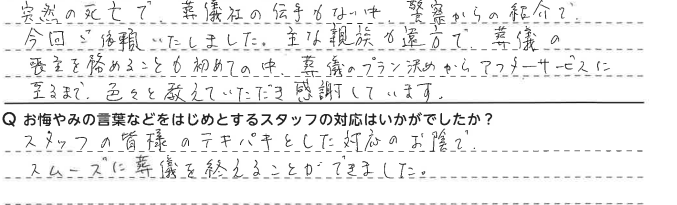 突然の死亡で、葬儀社の伝手もない中、警察からの紹介で、
今回ご依頼いたしました。主な親族が遠方で、葬儀の
喪主を務めることも初めての中、葬儀のプラン決めからアフターサービスに
至るまで、色々と教えていただき感謝しています。
Q お悔やみの言葉などをはじめとするスタッフの対応はいかがでしたか？
スタッフの皆様のテキパキとした対応のお陰で、
スムーズに葬儀を終えることができました。